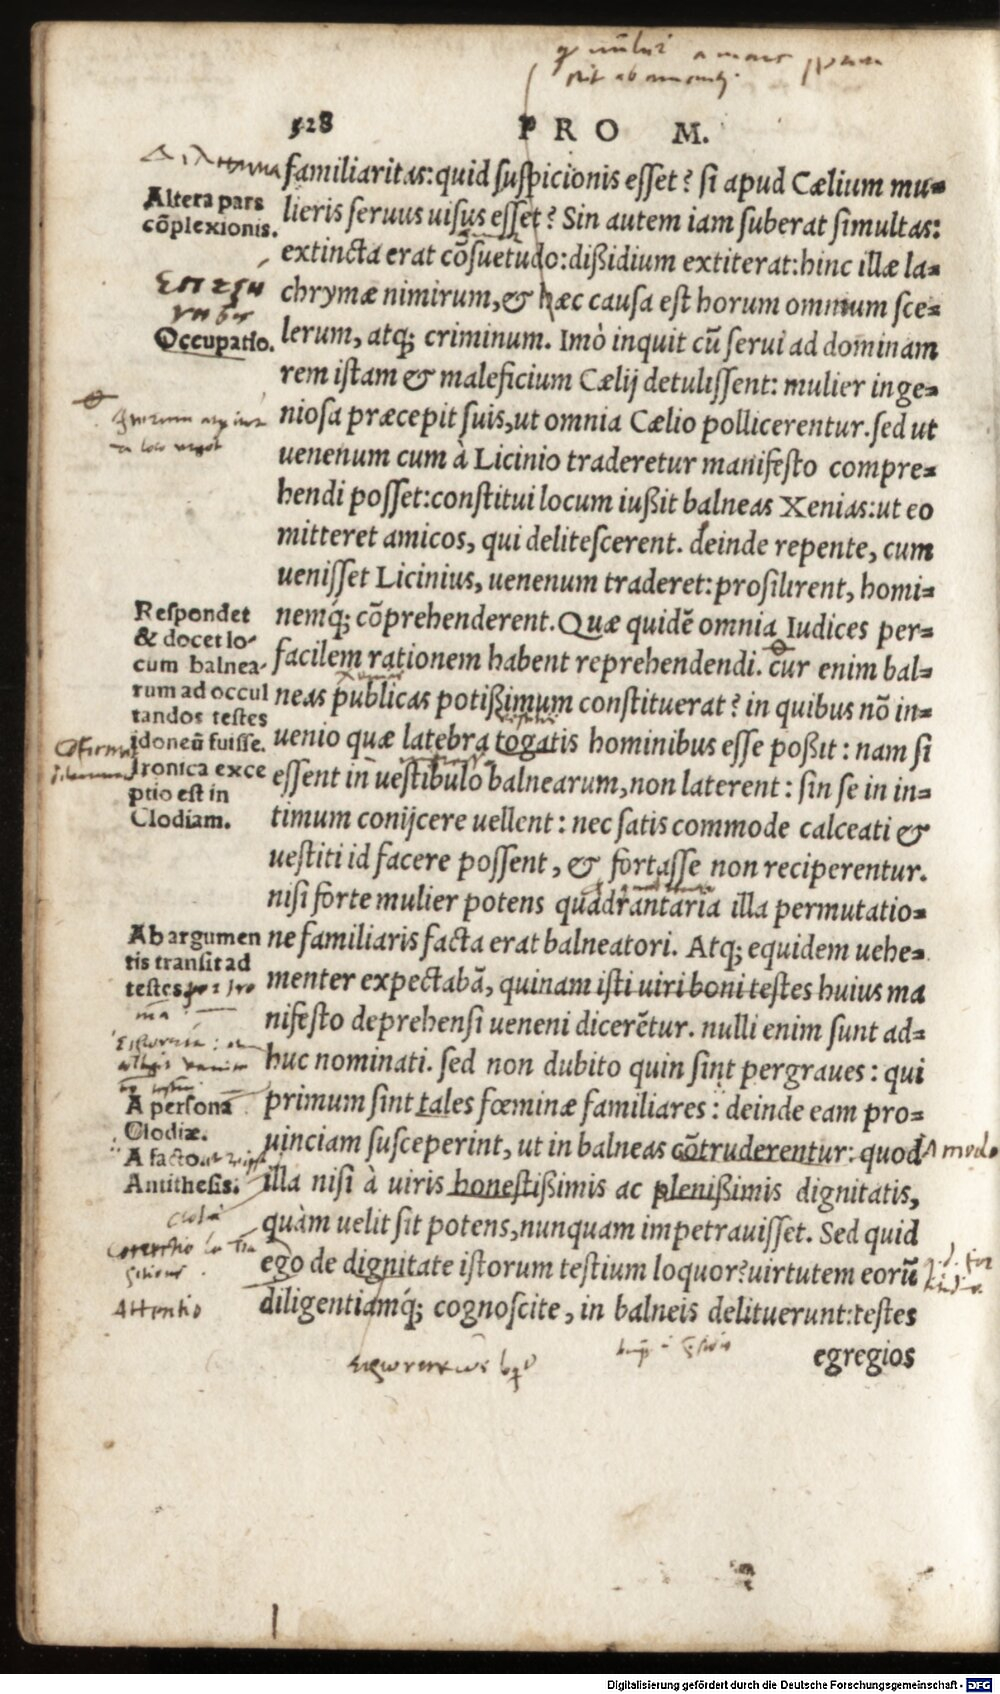 528 PRO M.
familiaritas: quid suſpicionis eſſet? ſi apud Cælium mu=
lieris ſeruus uiſus eſſet? Sin autem iam ſuberat ſimultas:
extincta erat cōſuetudo: dißidium extiterat: hinc illæ la=
chrymæ nimirum, & hæc cauſa eſt horum omnium ſce=
lerum, atq; criminum. Imò inquit cū ſerui ad dominam
rem iſtam & maleficium Cælij detuliſſent: mulier inge=
nioſa præcepit ſuis, ut omnia Cælio pollicerentur. ſed ut
uenenum cum à Licinio traderetur manifeſto compre=
hendi poſſet: conſtitui locum iußit balneas Xenias: ut eo
mitteret amicos, qui deliteſcerent. deinde repente, cum
ueniſſet Licinius, uenenum traderet: proſilirent, homi=
nemq́; cōprehenderent. Quæ quidē omnia Iudices per=
facilem rationem habent reprehendendi. cur enim bal=
neas publicas potißimum conſtituerat? in quibus nō in=
uenio quæ latebra togatis hominibus eſſe poßit: nam ſi
eſſent in ueſtibulo balnearum, non laterent: ſin ſe in in=
timum conijcere uellent: nec ſatis commode calceati &
ueſtiti id facere poſſent, & fortaſſe non reciperentur.
niſi forte mulier potens quadrantaria illa permutatio=
ne familiaris facta erat balneatori. Atq; equidem uehe=
menter expectabā, quinam iſti uiri boni teſtes huius ma
nifeſto deprehenſi ueneni dicerētur. nulli enim ſunt ad=
huc nominati. ſed non dubito quin ſint pergraues: qui
primum ſint tales fœminæ familiares: deinde eam pro=
uinciam ſuſceperint, ut in balneas cōtruderentur: quod
illa niſi à uiris honeſtißimis ac plenißimis dignitatis,
quàm uelit ſit potens, nunquam impetrauiſſet. Sed quid
ego de dignitate iſtorum teſtium loquor? uirtutem eorū
diligentiamq́; cognoſcite, in balneis delituerunt: teſtes
egregios
Altera pars
cōplexionis.
Occupatio.
Reſpondet
& docet lo-
cum balnea-
rum ad occul
tandos teſtes
idoneū fuiſſe.
Ironica exce
ptio eſt in
Clodiam.
Ab argumen
tis tranſit ad
teſtes
A perſona
Clodiæ.
A facto.
Antitheſis.
Attentio
A modo
Digitalisierung gefördert durch die Deutsche Forschungsgemeinschaft - DFG